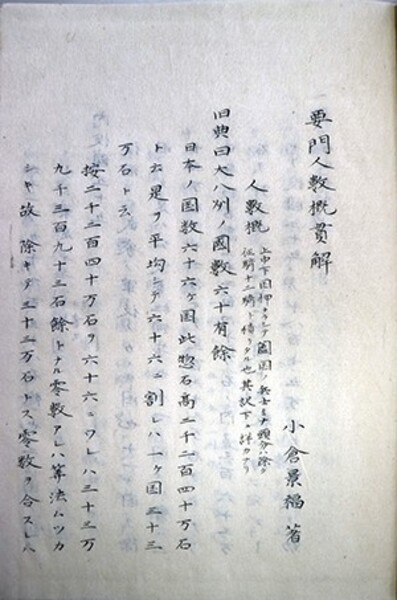 要門人數概貫解
小倉景福著
人數概
上中下 闔国ノ兵士 頭分ハ除ク
十二騎ト積リタル也其訳下ニ詳カナリ
旧典曰大八州ノ國數六十有餘
日本ノ国数六十六ケ国此惣石高二千二百四十万石
ト云是ヲ平均シテ六十六ニ割レハ一ケ国三十三
万石ト云
按二千二百四十万石ヲ六十六ニワレハ三十三万
九千三百九十三石餘トナル零數アレハ筭法ムツカ
シキ故除キテ三十三万石トス零数ヲ合スレハ